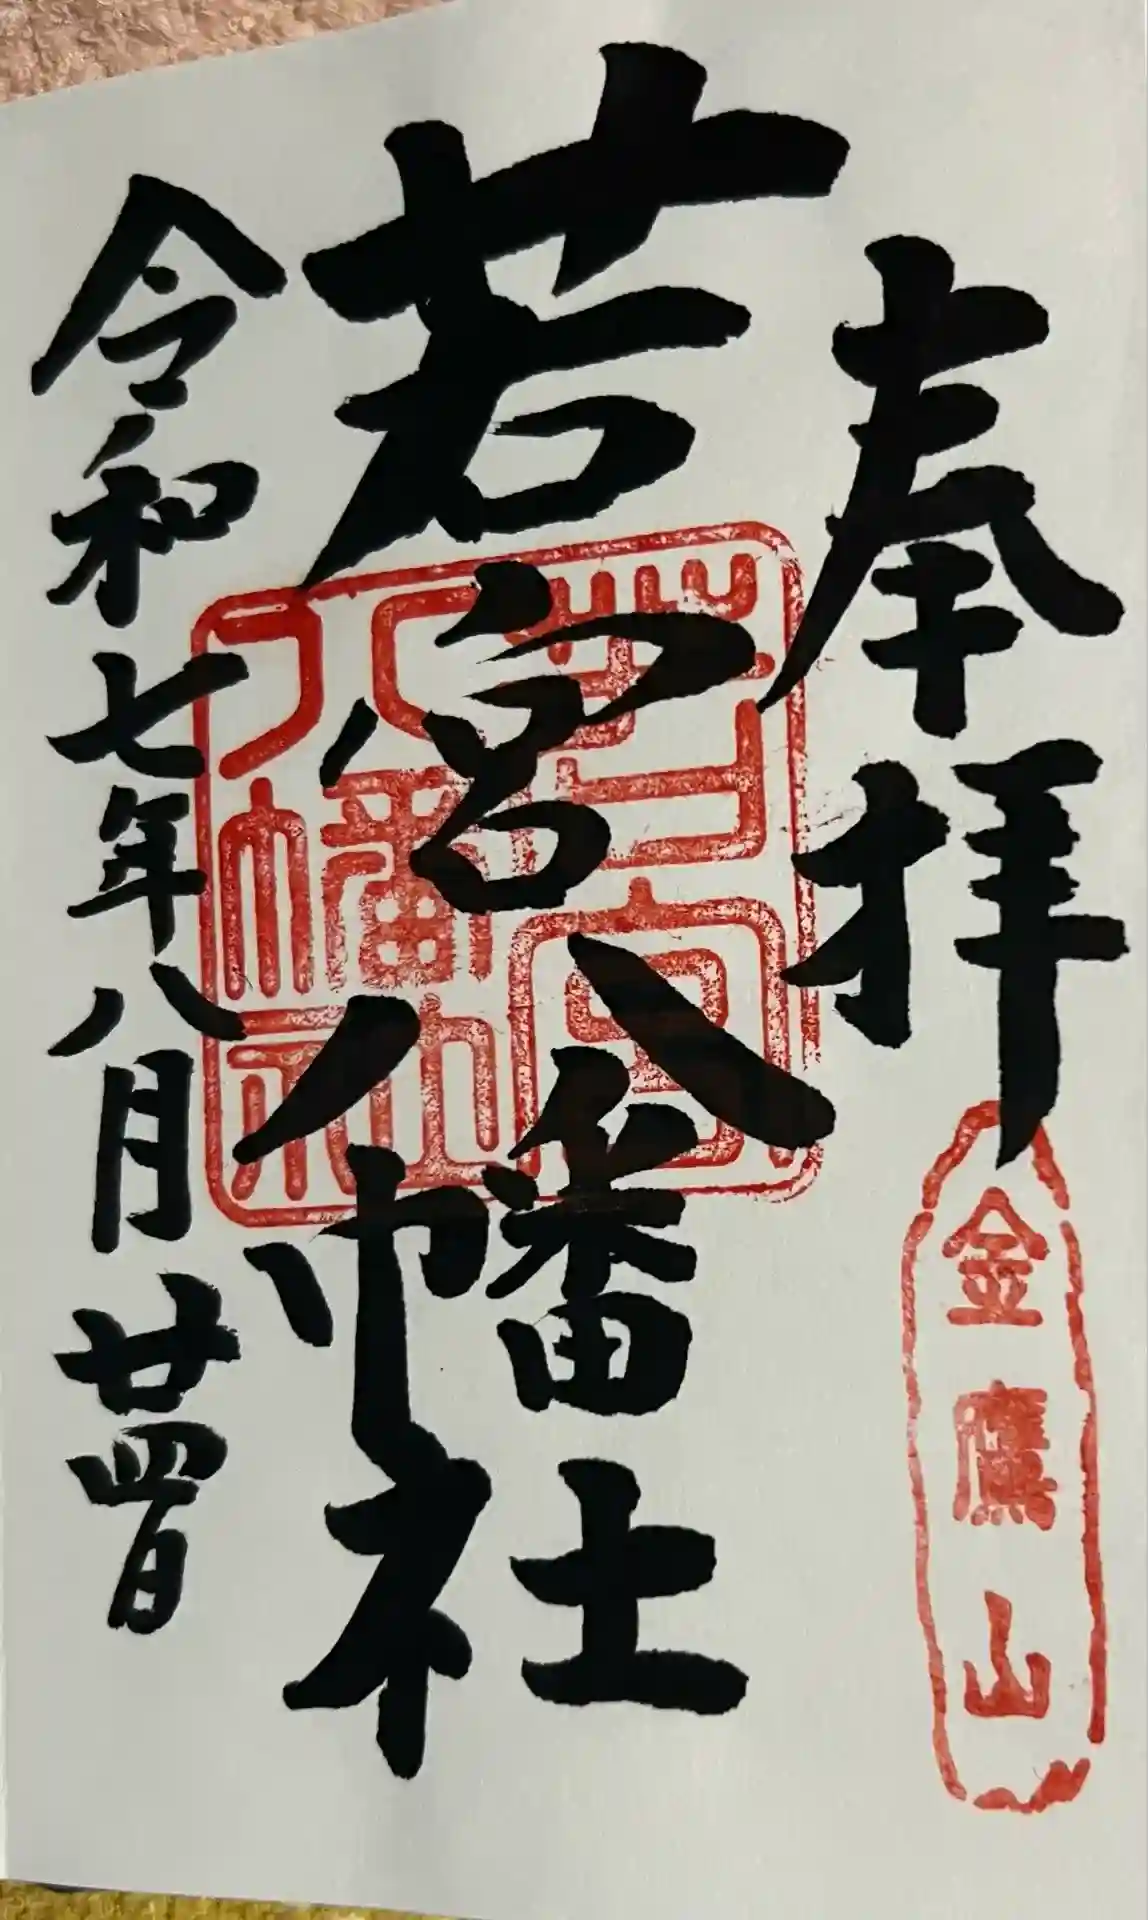 奉拝
金鷹山
若宮八幡社
若宮八幡社
令和七年八月廿四日